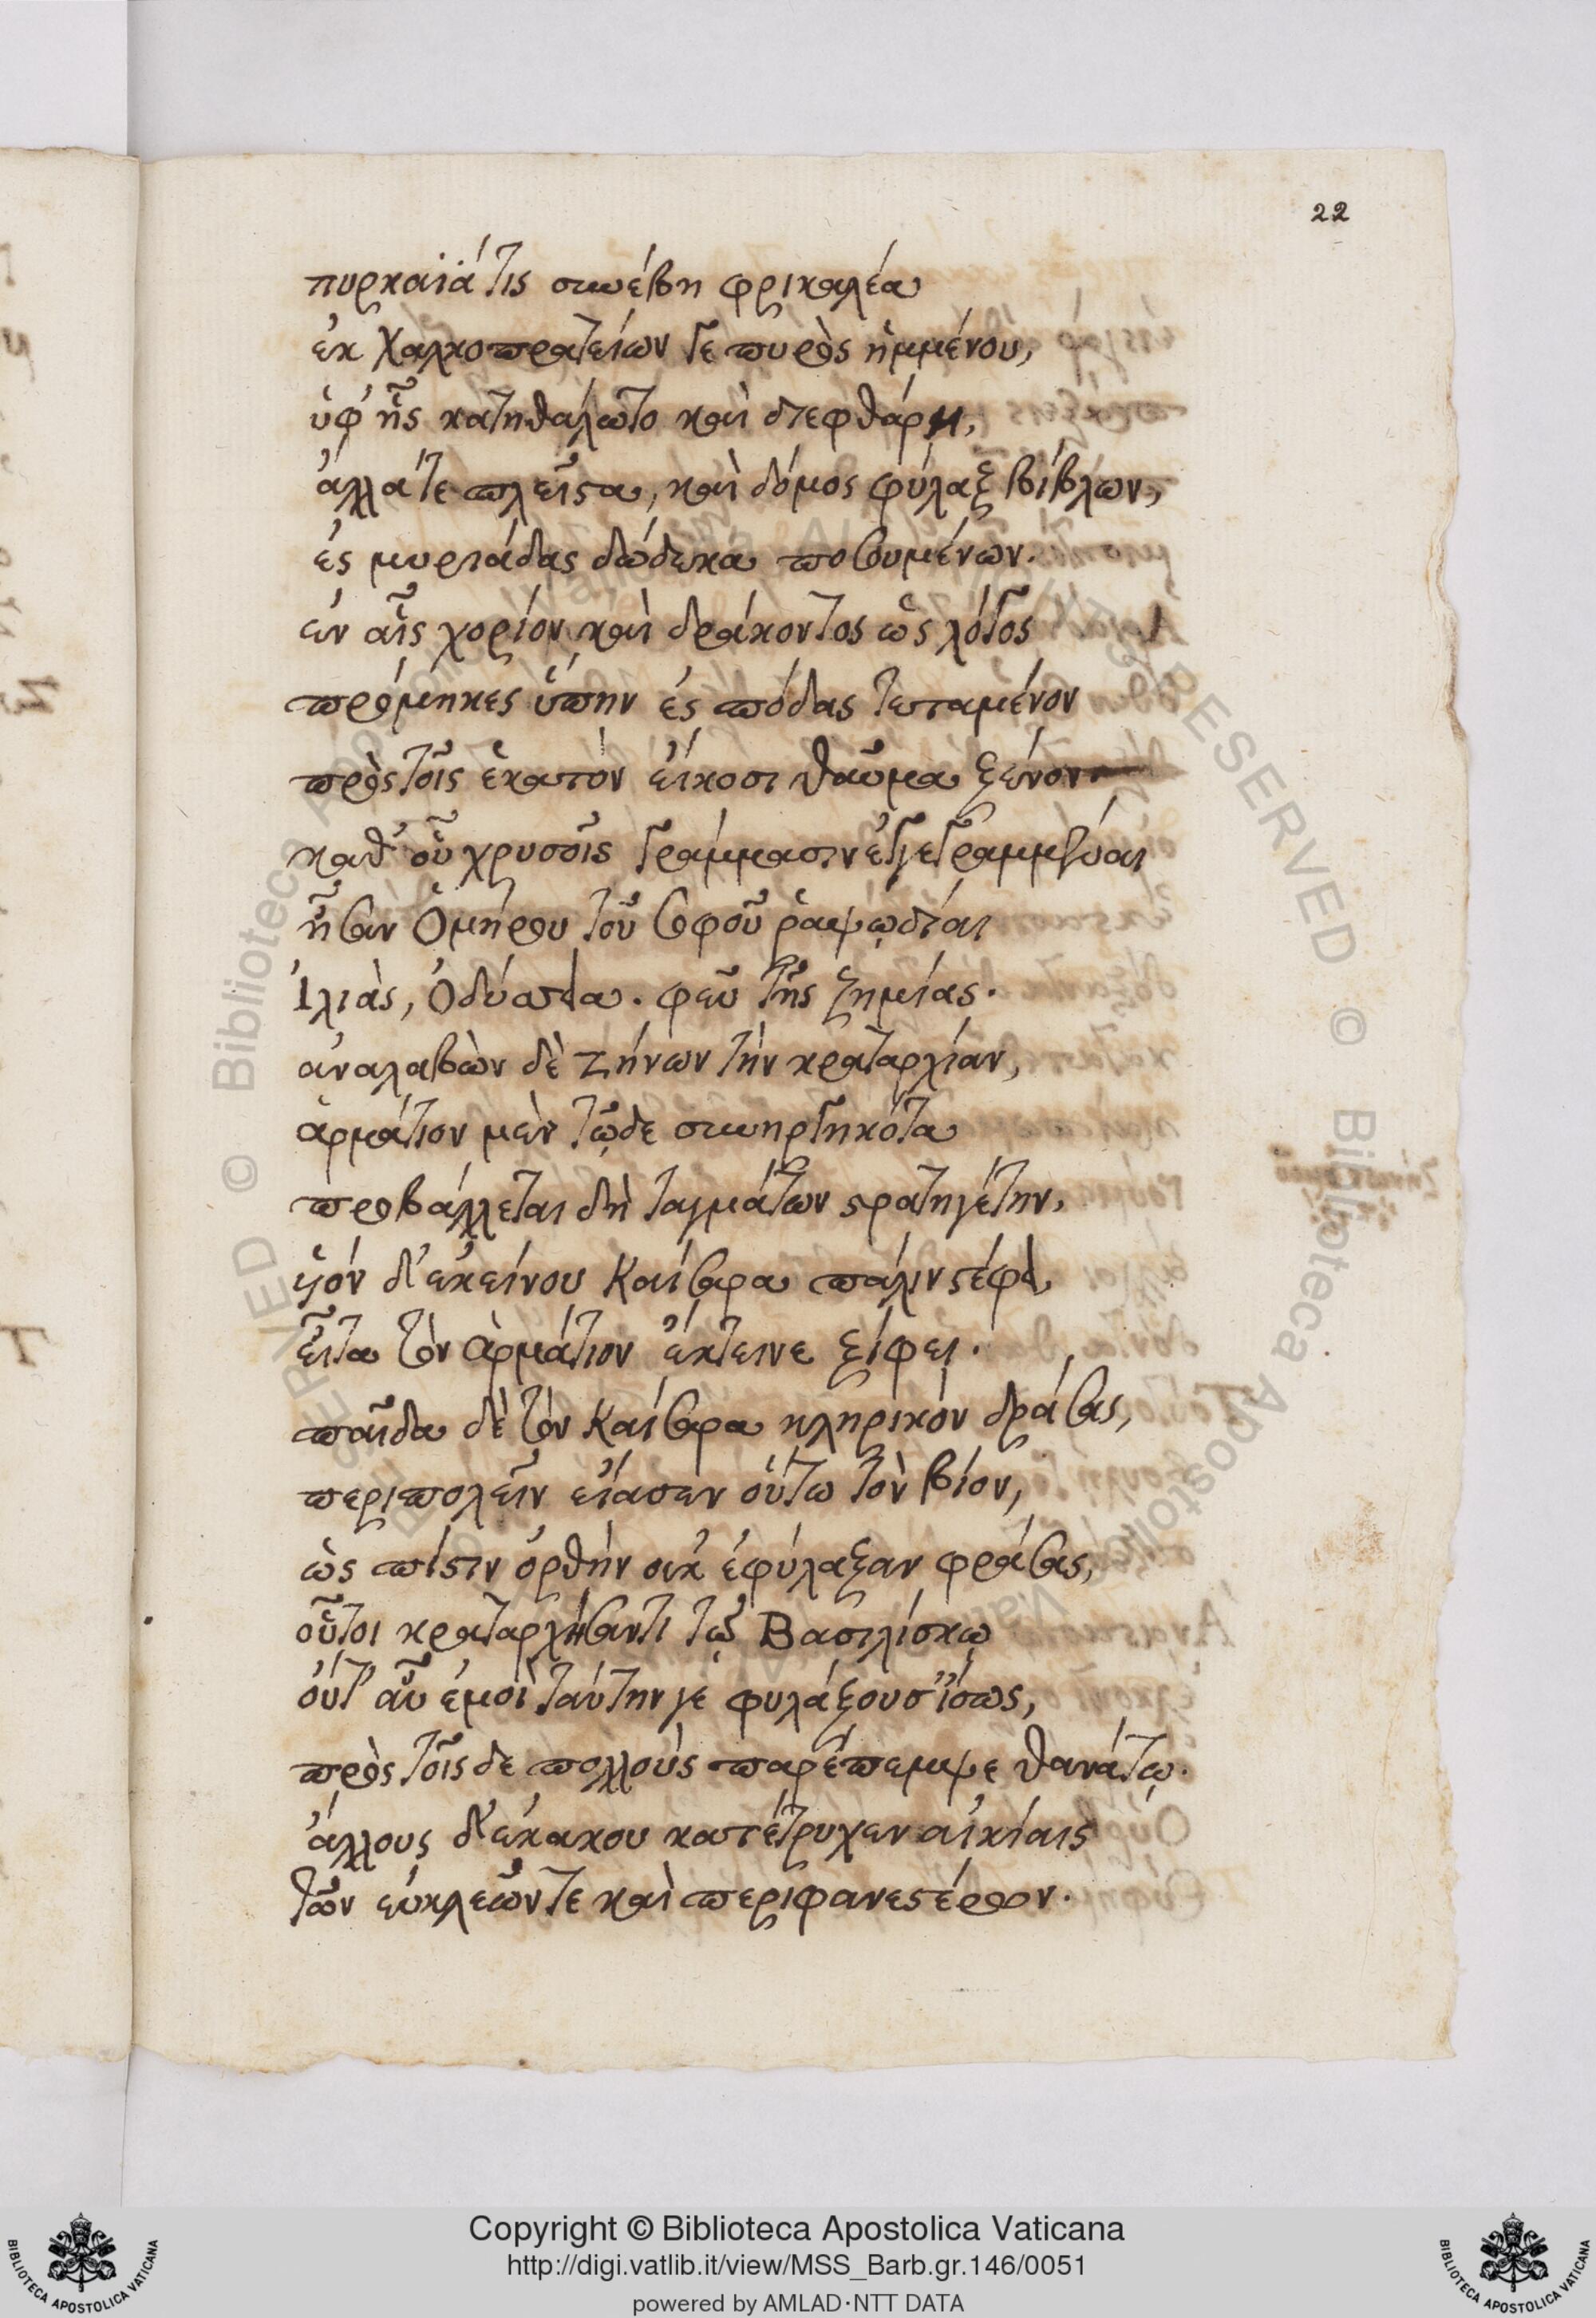 22
πυρκαϊά τις συνέβη φρικαλέα
ἐκ Χαλκοπρατείων γε πυρὸς ἡμμένου,
ὑφ' ἧς κατηθάλωτο καὶ διεφθάρη,
ἄλλα τε πλεῖστα, καὶ δόμος φύλαξ βίβλων,
ἐς μυριάδας δώδεκα ποσουμένων.
ἐν αἷς χορίον καὶ δράκοντος ὡς λόγος
πρόμηκες ὑπῆν ἐς πόδας τεταμένον
πρὸς τοῖς ἑκατὸν εἴκοσι θαῦμα ξένον
καθ' οὗ χρυσοῖς γράμμασιν ἐγγεγραμμέναι
ἦσαν Ὁμήρου τοῦ σοφοῦ ῥαψῳδίαι
Ἰλιὰς, Ὀδύσσεια. φεῦ τῆς ζημίας.
ἀναλαβὼν δὲ Ζήνων τὴν κραταρχίαν,
ἁρμάτιον μὲν τῷδε συνηργηκότα
προβάλλεται δὴ ταγμάτων στρατηγέτην,
υἱόν δ' ἐκείνου Καίσαρα πάλιν στέφει,
εἶτα τὸν ἁρμάτιον ἔκτεινε ξίφει.
παῖδα δὲ τὸν Καίσαρα κληρικὸν δράσας,
περιπολεῖν εἴασεν οὕτω τὸν βίον,
ὡς πίστιν ὀρθὴν οὐκ ἐφύλαξαν φράσας,
οὗτοι κραταρχήσαντι τῷ Βασιλίσκῳ
οὔτ' αὖ ἐμοὶ ταύτην γε φυλάξουσ' ἴσως,
πρὸς τοῖς δε πολλοὺς παρέπεμψε θανάτῳ.
ἄλλους δ' ἐκάκου κατέτρυχεν αἰκίαις
τῶν εὐκλεῶν τε καὶ περιφανεστέρων.
Copyright © Biblioteca Apostolica Vaticana
http://digi.vatlib.it/view/MSS_Barb.gr.146/0051
powered by AMLAD·NTT DATA
BIBLIOTECA APOSTOLICA VATICANA
BIBLIOTECA APOSTOLICA VATICANA